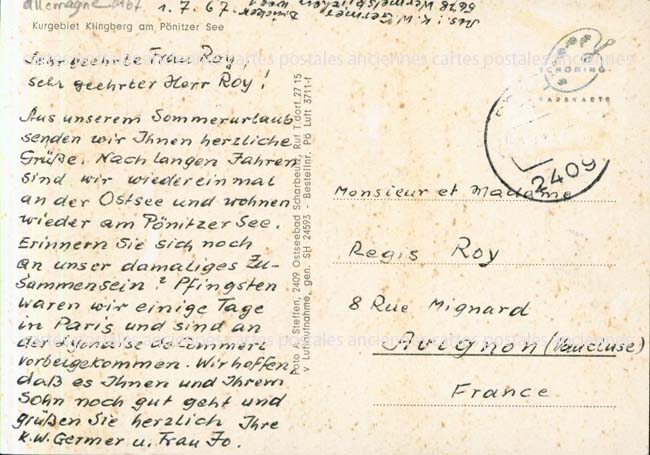 allemagne
1.7.67.
Kurgebiet Klingberg am Pönitzer See
Sehr geehrte Frau Roy,
sehr geehrter Herr Roy!
Aus unserem Sommerurlaub
senden wir Ihnen herzliche
Grüße. Nach langen Jahren
sind wir wieder einmal
an der Ostsee und wohnen
wieder am Pönitzer See.
Erinnern Sie sich noch
an unser damaliges Zu-
sammensein? Pfingsten
waren wir einige Tage
in Paris und sind an
der Lyonaise de Commerz
vorbeigekommen. Wir hoffen,
daß es Ihnen und Ihrem
Sohn noch gut geht und
grüßen Sie herzlich Ihre
K.W. Germer u. Frau Jo.
Foto A. Steffen, 2409 Ostseebad Scharbeutz, Ruf T'dorf 27 15
v Luftaufnahme, gen. SH 24593 - Bestellnr. Pö Luft 3711-f
SCHÖNING
FARBKARTE
2409
Monsieur et Madame
Regis Roy
8 Rue Mignard
Avignon (Vaucluse)
France
cartes postales anciennes cartes postales anciennes cartes postales